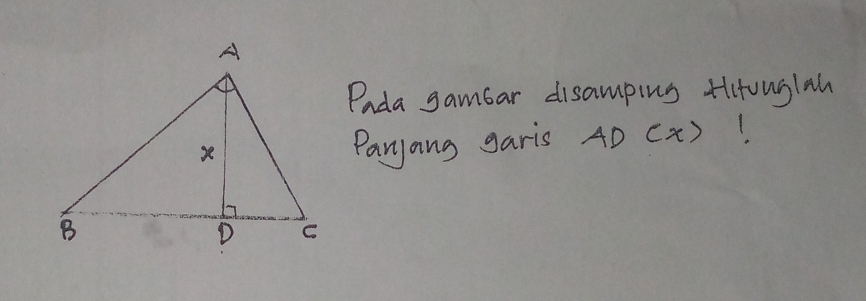 A
Pada gambar disamping Hitunglah
Panjang garis AD (x) !
x
B D C